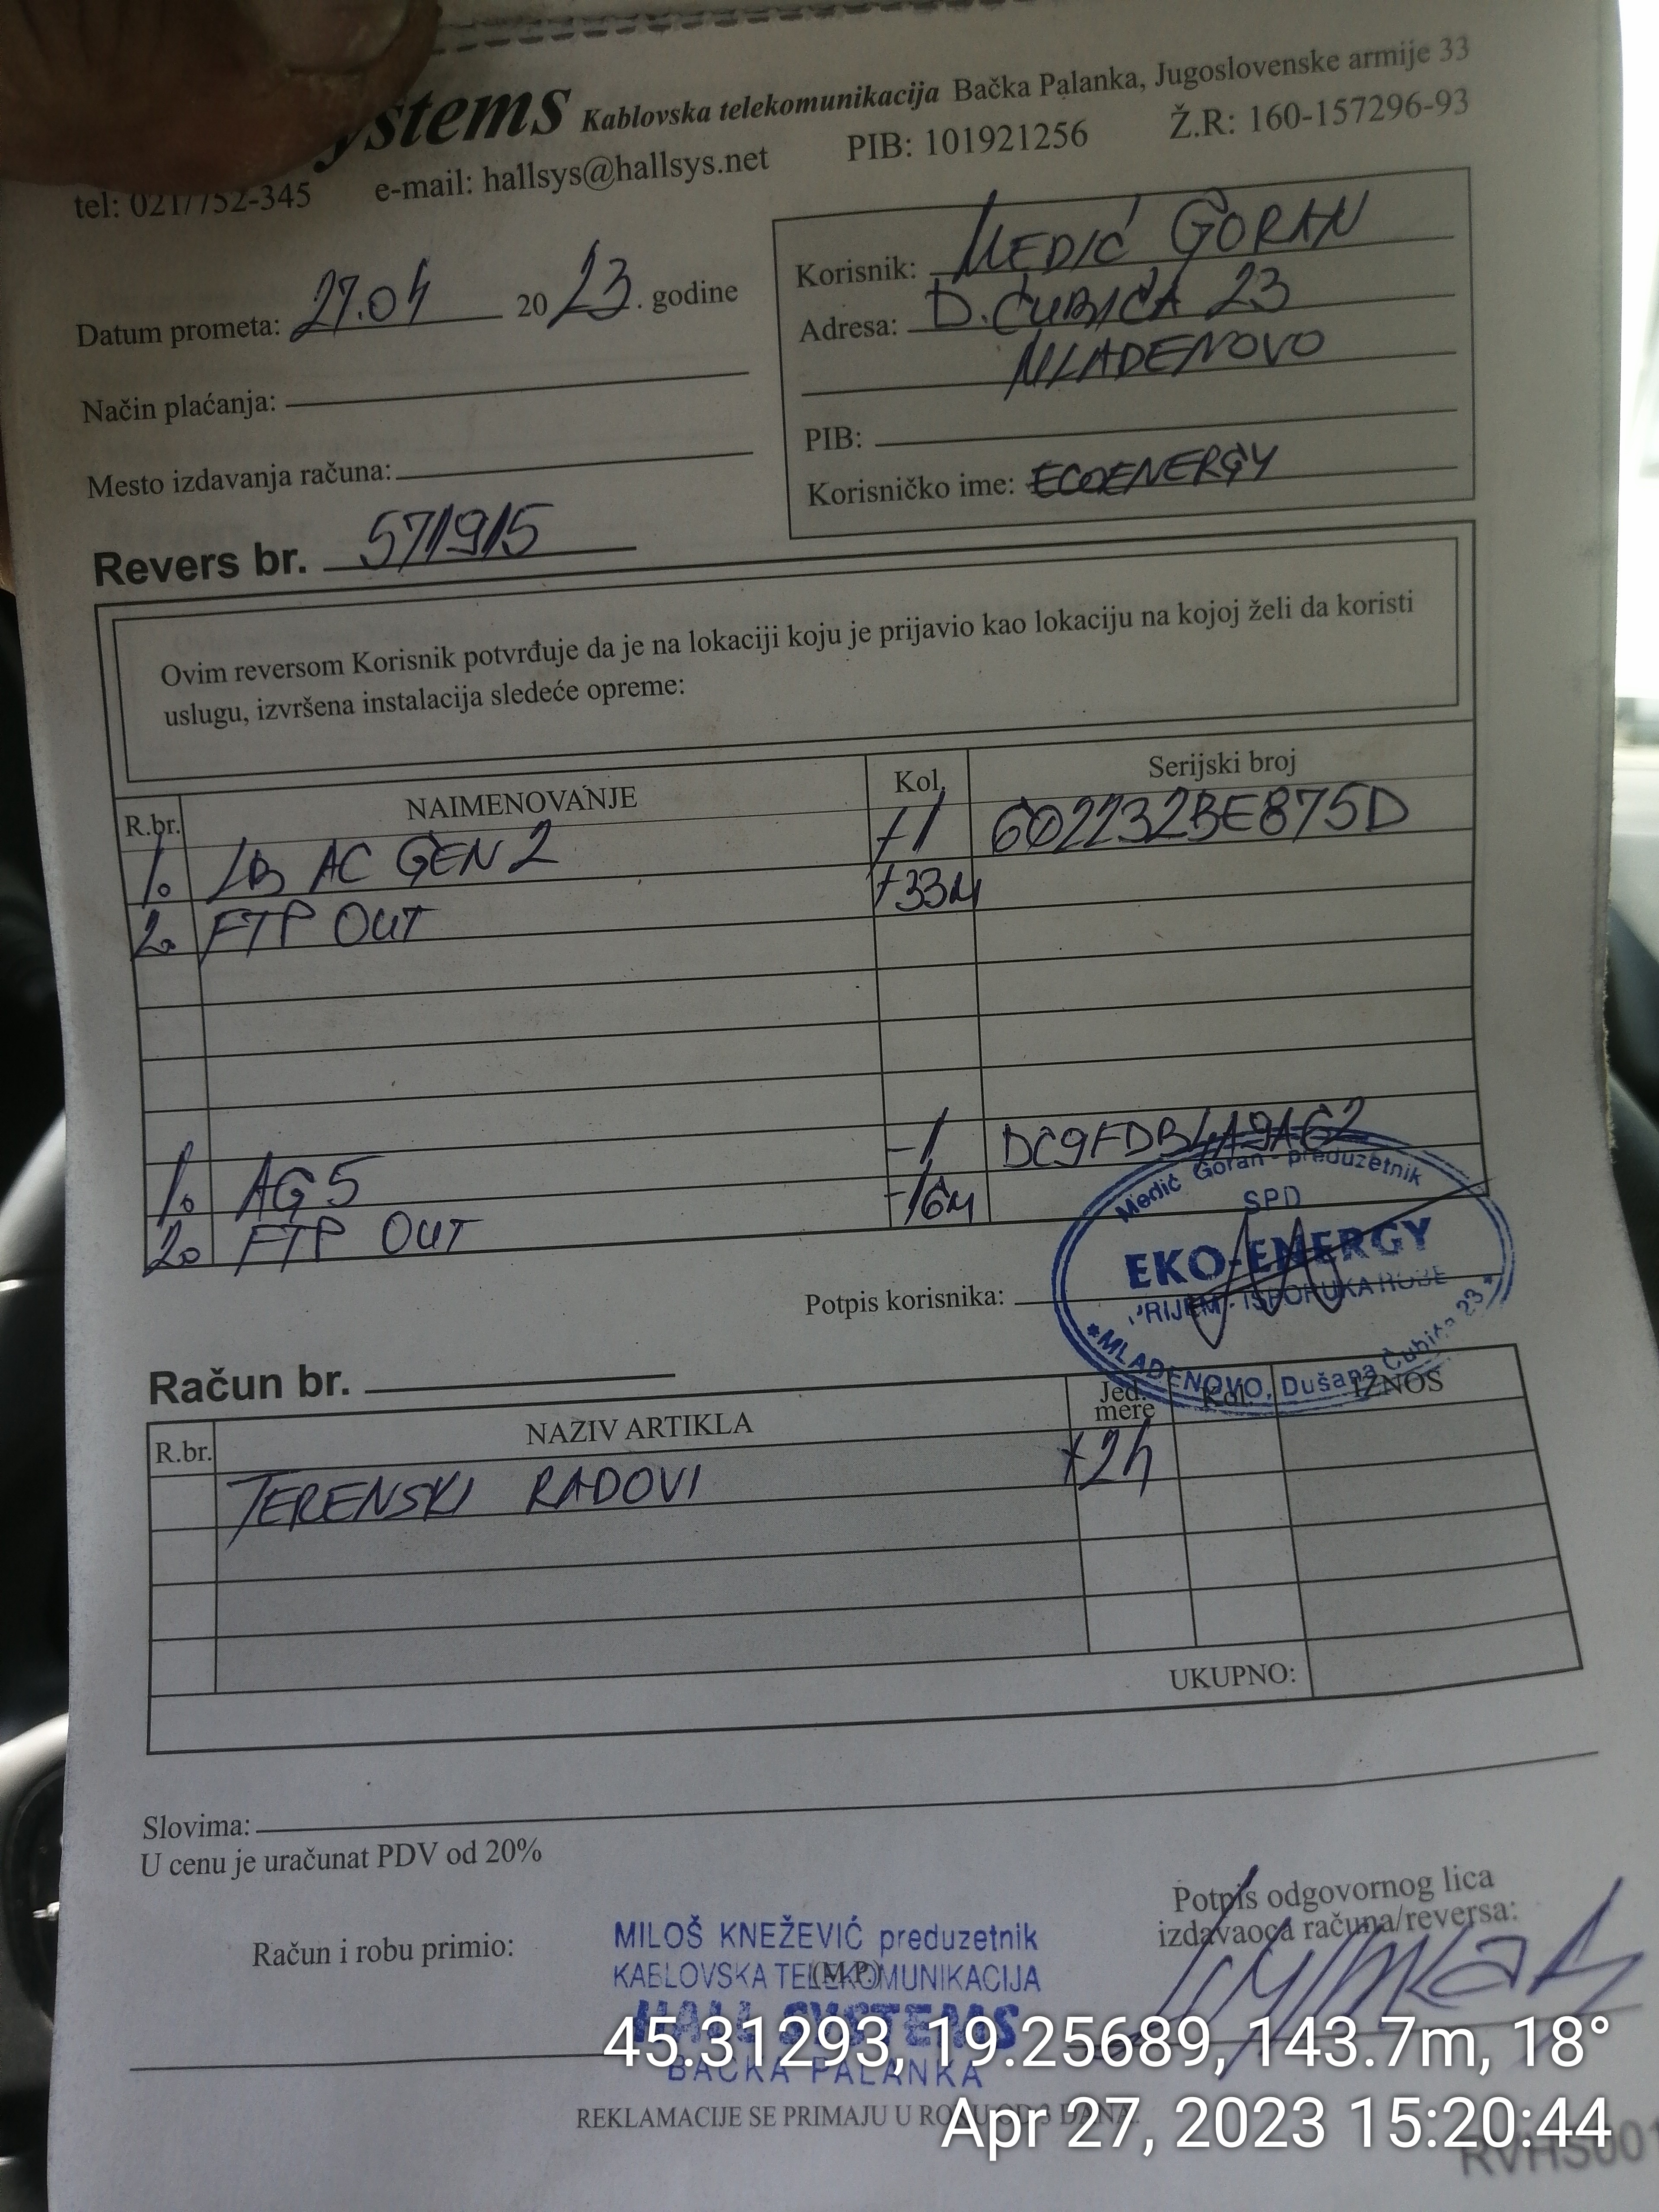 ystems Kablovska telekomunikacija Bačka Palanka, Jugoslovenske armije 33
tel: 021/752-345 e-mail: hallsys@hallsys.net PIB: 101921256 Ž.R: 160-157296-93
Datum prometa: 27.04 2023. godine
Način plaćanja:
Mesto izdavanja računa:
Korisnik: MEDIĆ GORAN
Adresa: D. ĆUBIĆA 23
MLADENOVO
PIB:
Korisničko ime: ECOENERGY
Revers br. 571915
Ovim reversom Korisnik potvrđuje da je na lokaciji koju je prijavio kao lokaciju na kojoj želi da koristi
uslugu, izvršena instalacija sledeće opreme:
R.br. NAIMENOVANJE Kol. Serijski broj
1. LB AC GEN2 +1 602232BE875D
2. FTP OUT +33M
1. AG5 -1 DC9FDB4A9A62
2. FTP OUT -16M
Medić Goran - preduzetnik
SPD
EKO-ENERGY
PRIJEM - ISPORUKA ROBE
*MLADENOVO, Dušana Čubića 23*
Potpis korisnika:
Račun br.
R.br. NAZIV ARTIKLA Jed. mere Kol. IZNOS
TERENSKI RADOVI +2h
UKUPNO:
Slovima:
U cenu je uračunat PDV od 20%
Račun i robu primio:
(M.P.)
MILOŠ KNEŽEVIĆ preduzetnik
KABLOVSKA TELEKOMUNIKACIJA
HALL SYSTEMS
BAČKA PALANKA
Potpis odgovornog lica
izdavaoca računa/reversa:
REKLAMACIJE SE PRIMAJU U ROKU OD 8 DANA.
RVHS001
45.31293, 19.25689, 143.7m, 18°
Apr 27, 2023 15:20:44